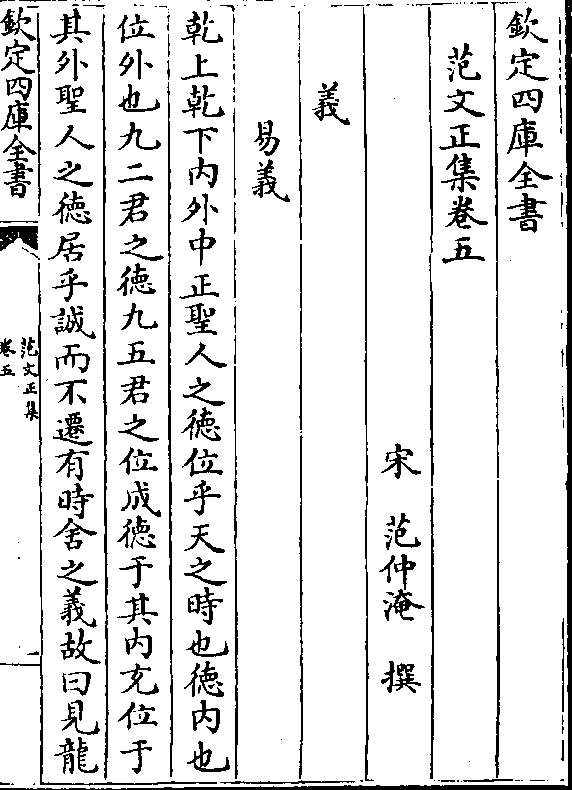 欽定四庫全書
范文正集卷五
宋 范仲淹 撰
義
易義
乾上乾下内外中正聖人之德位乎天之時也德内也
位外也九二君之德九五君之位成德于其内充位于
其外聖人之德居乎誠而不遷有時舍之義故曰見龍
欽定四庫全書
范文正集
卷五
一